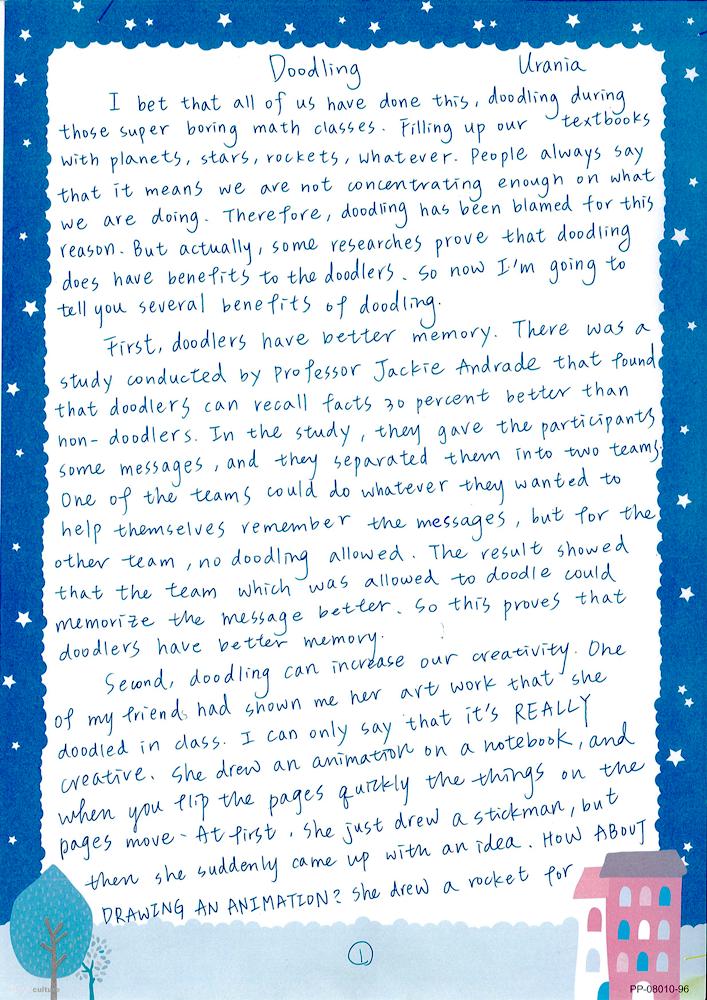 Doodling Urania
I bet that all of us have done this, doodling during
those super boring math classes. Filling up our textbooks
with planets, stars, rockets, whatever. People always say
that it means we are not concentrating enough on what
we are doing. Therefore, doodling has been blamed for this
reason. But actually, some researches prove that doodling
does have benefits to the doodlers. So now I'm going to
tell you several benefits of doodling.
First, doodlers have better memory. There was a
study conducted by Professor Jackie Andrade that found
that doodlers can recall facts 30 percent better than
non-doodlers. In the study, they gave the participants
some messages, and they separated them into two teams.
One of the teams could do whatever they wanted to
help themselves remember the messages, but for the
other team, no doodling allowed. The result showed
that the team which was allowed to doodle could
memorize the message better. So this proves that
doodlers have better memory.
Second, doodling can increase our creativity. One
of my friends had shown me her art work that she
doodled in class. I can only say that it's REALLY
creative. She drew an animation on a notebook, and
when you flip the pages quickly the things on the
pages move. At first, she just drew a stickman, but
then she suddenly came up with an idea. HOW ABOUT
DRAWING AN ANIMATION? She drew a rocket for
1
culture
PP-08010-96